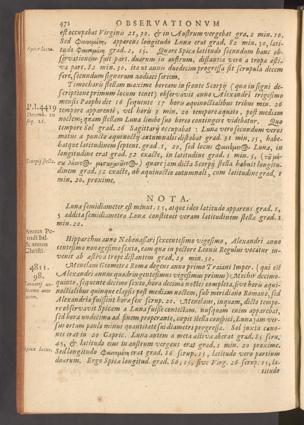 972 OBSERVATIONUM
est occupabat Virginis 21, 30. & in Austrum vergebat gra. 2 min. 10.
Sed apparens longitudo Lunæ erat grad. 82 min. 30, lati-
tudo grad. 2, 15. Quare Spica latitudo secundum hanc ob-
servationem fuit part. duarum in austrum, distantia vero a tropo æsti-
vo part. 82 min. 30, ita ut annis duodecim progressa sit scrupula decem
fere, secundum signorum zodiaci seriem.
Timocharis stellam maxime boream in fronte Scorpij (qua in signi de-
scriptione primum locum tenet) observavit anno Alexandri
mensis 16 sequente 17 horis æquinoctialibus tribus min. 26
tempore apparenti, vel horis 3 min. 20 tempore æquato, post mediam
noctem; quam stellam Luna limbo suo boreo contingere videbatur. Quo
tempore Sol grad. 26 Sagittarij occupabat: Luna vero secundum veros
motus a puncto æquinoctij autumnalis distabat grad. 31 min. 35, habe-
batque latitudinem septent. grad. 1, 20, sed locus Lunæ, in
longitudine erat grad. 32 exacte, in latitudine grad. 1 min. 5,
quare jam dicta Scorpij stella habuit longitu-
dinem grad. 32 exacte, ab æquinoctio autumnali, cum latitudine, grad. 1
min. 20. proxime.
NOTA.
Luna semidiameter est minut. 15, atque ideo latitudo apparens grad. 1,
5 addita semidiametro Lunæ constituit veram latitudinem stella grad. 1
min. 20.
Hipparchus anno Nabonassari sexcentesimo vigesimo, Alexandri anno
centesimo nonagesimo sexto, eam quæ in pectore Leonis Regulus vocatur in-
venit ab æstiva tropa distantem grad. 29 min. 50.
Menelaus Geometra Romæ degens anno primo Traiani Imper. (qui est
Alexandri annis quadringentesimus vigesimus primus), Mechir decimo-
quinto, sequente decimo sexto, hora decima noctis completa, sive horis æqui-
noctialibus quinque elapsis post mediam noctem, sub meridiano Romano, sed
Alexandriæ fuissent horæ sex scrup. 20. Menelaus, inquam, dicto tempo-
re observavit Spicam a Luna fuisse contectam. nusquam enim apparebat,
sed hora undecima ad finem properante, cupit stella conspici, Luna jam ver-
sus ortum paulo minus quantitate sui diametri progressa. Sol juxta cano-
nes erat in 20 Capric. Luna autem a meta æstiva aberat grad. 85 scru.
45, & latitudo ejus in austrum vergens erat grad. 1 min. 20 proxime.
Sed longitudo erat grad. 86 scrup. 15, latitudo vero partium
duarum. Ergo Spica longitud. grad. 86, 15, sive Virg. 26 scrup. 15, la-
titudo
Spica locus.
P.I.4419
Scorpij stella.
4811.
98.
Spica locus.